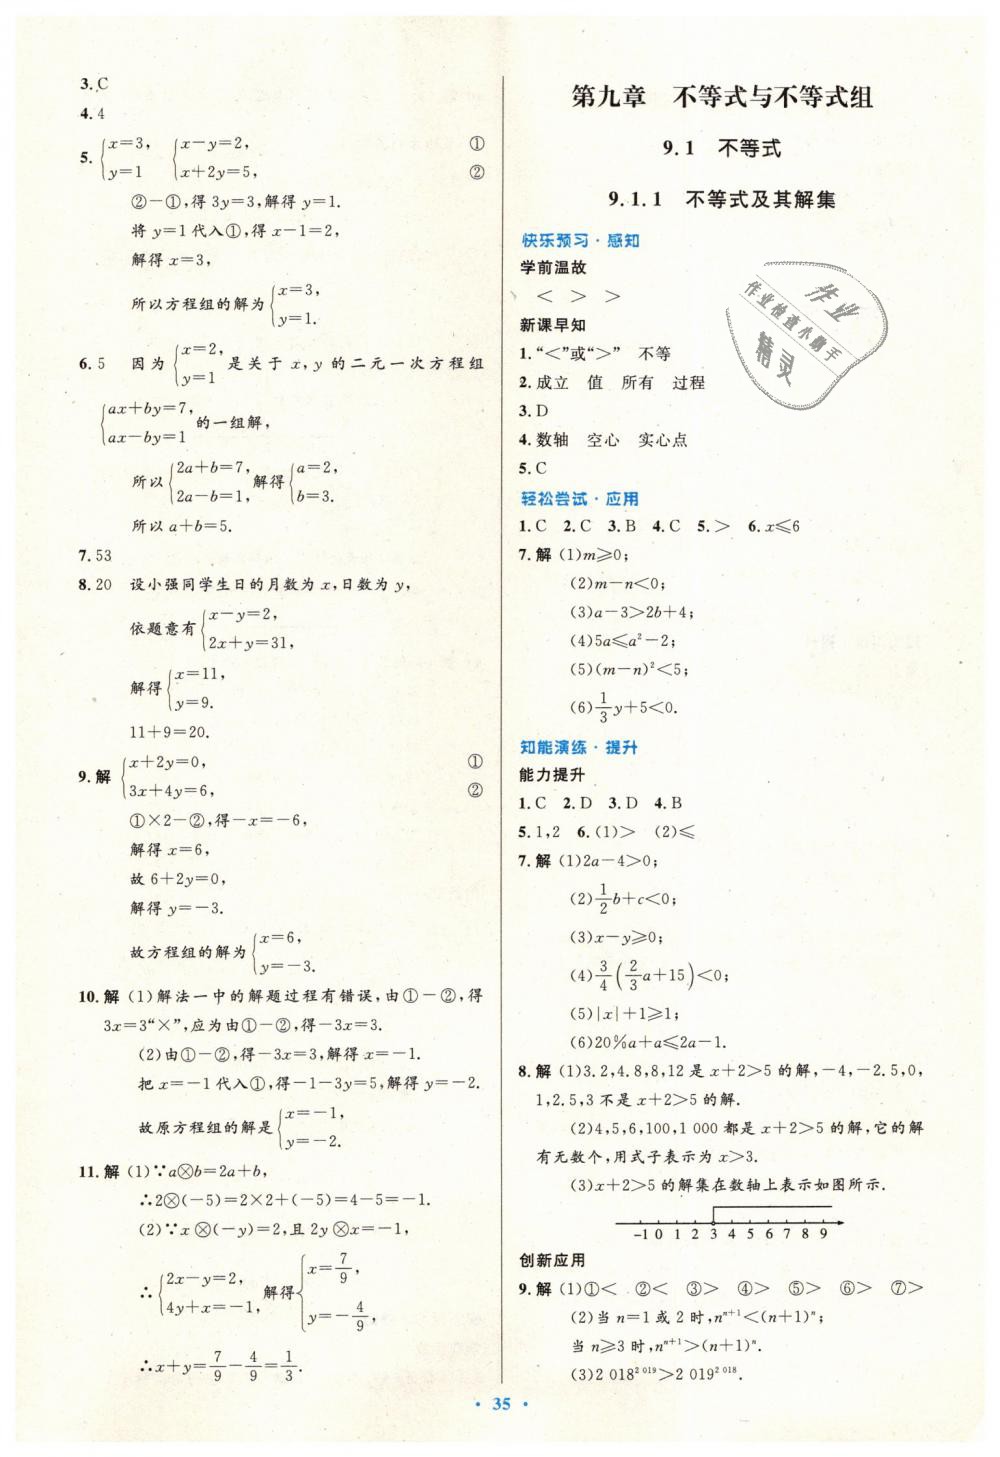 3.C
4.4
5. {x=3, y=1 {x-y=2, ① x+2y=5, ②
②-①,得3y=3,解得y=1.
将y=1代入①,得x-1=2,
解得x=3,
所以方程组的解为{x=3, y=1.
6.5 因为{x=2, y=1 是关于x,y的二元一次方程组
{ax+by=7, ax-by=1 的一组解,
所以{2a+b=7, 2a-b=1, 解得{a=2, b=3.
所以a+b=5.
7.53
8.20 设小强同学生日的月数为x,日数为y,
依题意有{x-y=2, 2x+y=31,
解得{x=11, y=9.
11+9=20.
9.解 {x+2y=0, ① 3x+4y=6, ②
①×2-②,得-x=-6,
解得x=6,
故6+2y=0,
解得y=-3.
故方程组的解为{x=6, y=-3.
10.解 (1)解法一中的解题过程有错误,由①-②,得
3x=3“×”,应为由①-②,得-3x=3.
(2)由①-②,得-3x=3,解得x=-1.
把x=-1代入①,得-1-3y=5,解得y=-2.
故原方程组的解是{x=-1, y=-2.
11.解 (1)∵a⊗b=2a+b,
∴2⊗(-5)=2×2+(-5)=4-5=-1.
(2)∵x⊗(-y)=2,且2y⊗x=-1,
∴{2x-y=2, 4y+x=-1, 解得{x=7/9, y=-4/9,
∴x+y=7/9-4/9=1/3.
第九章 不等式与不等式组
9.1 不等式
9.1.1 不等式及其解集
快乐预习·感知
学前温故
< > >
新课早知
1.“<”或“>” 不等
2.成立 值 所有 过程
3.D
4.数轴 空心 实心点
5.C
轻松尝试·应用
1.C 2.C 3.B 4.C 5.> 6.x≤6
7.解 (1)m≥0;
(2)m-n<0;
(3)a-3>2b+4;
(4)5a≤a²-2;
(5)(m-n)²<5;
(6)1/3y+5<0.
知能演练·提升
能力提升
1.C 2.D 3.D 4.B
5.1,2 6.(1)> (2)≤
7.解 (1)2a-4>0;
(2)1/2b+c<0;
(3)x-y≥0;
(4)3/4(2/3a+15)<0;
(5)|x|+1≥1;
(6)20%a+a≤2a-1.
8.解 (1)3.2,4.8,8,12是x+2>5的解,-4,-2.5,0,
1,2.5,3不是x+2>5的解.
(2)4,5,6,100,1 000都是x+2>5的解,它的解
有无数个,用式子表示为x>3.
(3)x+2>5的解集在数轴上表示如图所示.
-1 0 1 2 3 4 5 6 7 8 9
创新应用
9.解 (1)①< ②< ③> ④> ⑤> ⑥> ⑦>
(2)当n=1或2时,nⁿ⁺¹<(n+1)ⁿ;
当n≥3时,nⁿ⁺¹>(n+1)ⁿ.
(3)2 018² ⁰¹⁹>2 019² ⁰¹⁸.
作业
作业检查小助手
精灵
· 35 ·